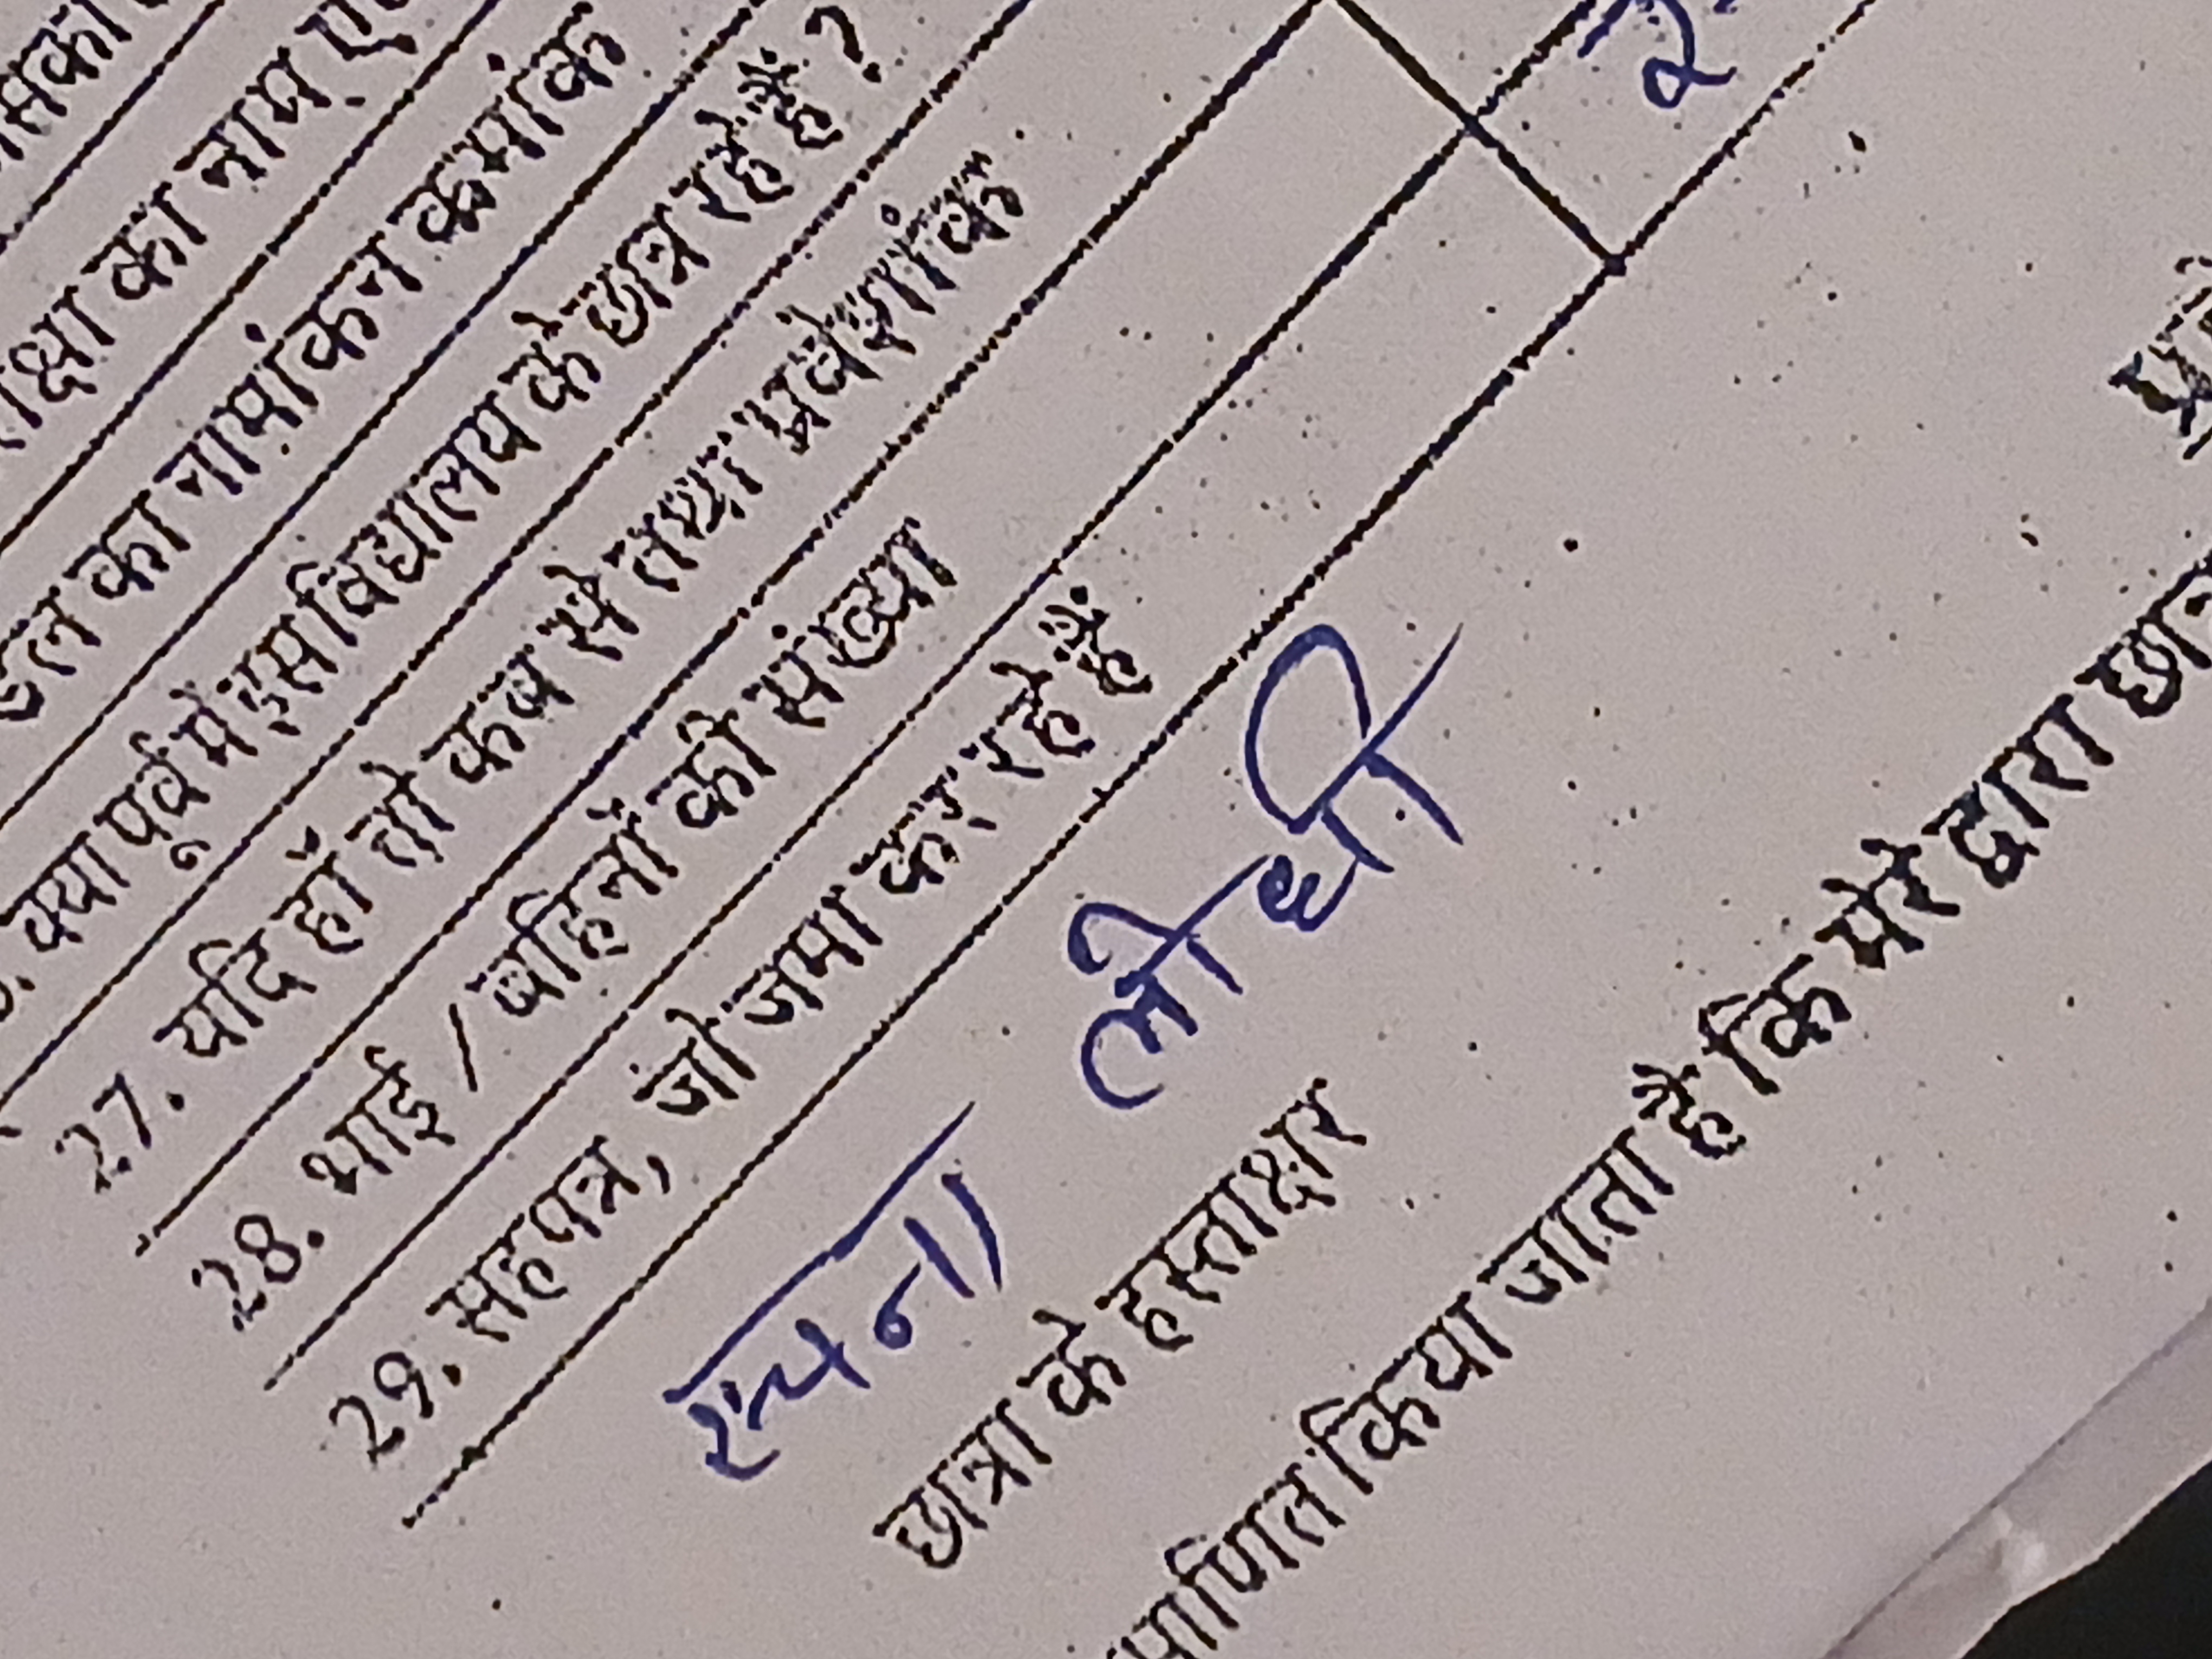 का नाम
का नामांकन क्रमांक
क्या पूर्व में इस विद्यालय के छात्र रहे हैं ?
27. यदि हाँ तो कब से तथा प्रवेशांक
28. भाई / बहिनों की संख्या
2
29. सहपत्र, जो जमा कर रहे हैं
रचना लोधी
छात्रा के हस्ताक्षर
किया जाता है कि मेरे द्वारा